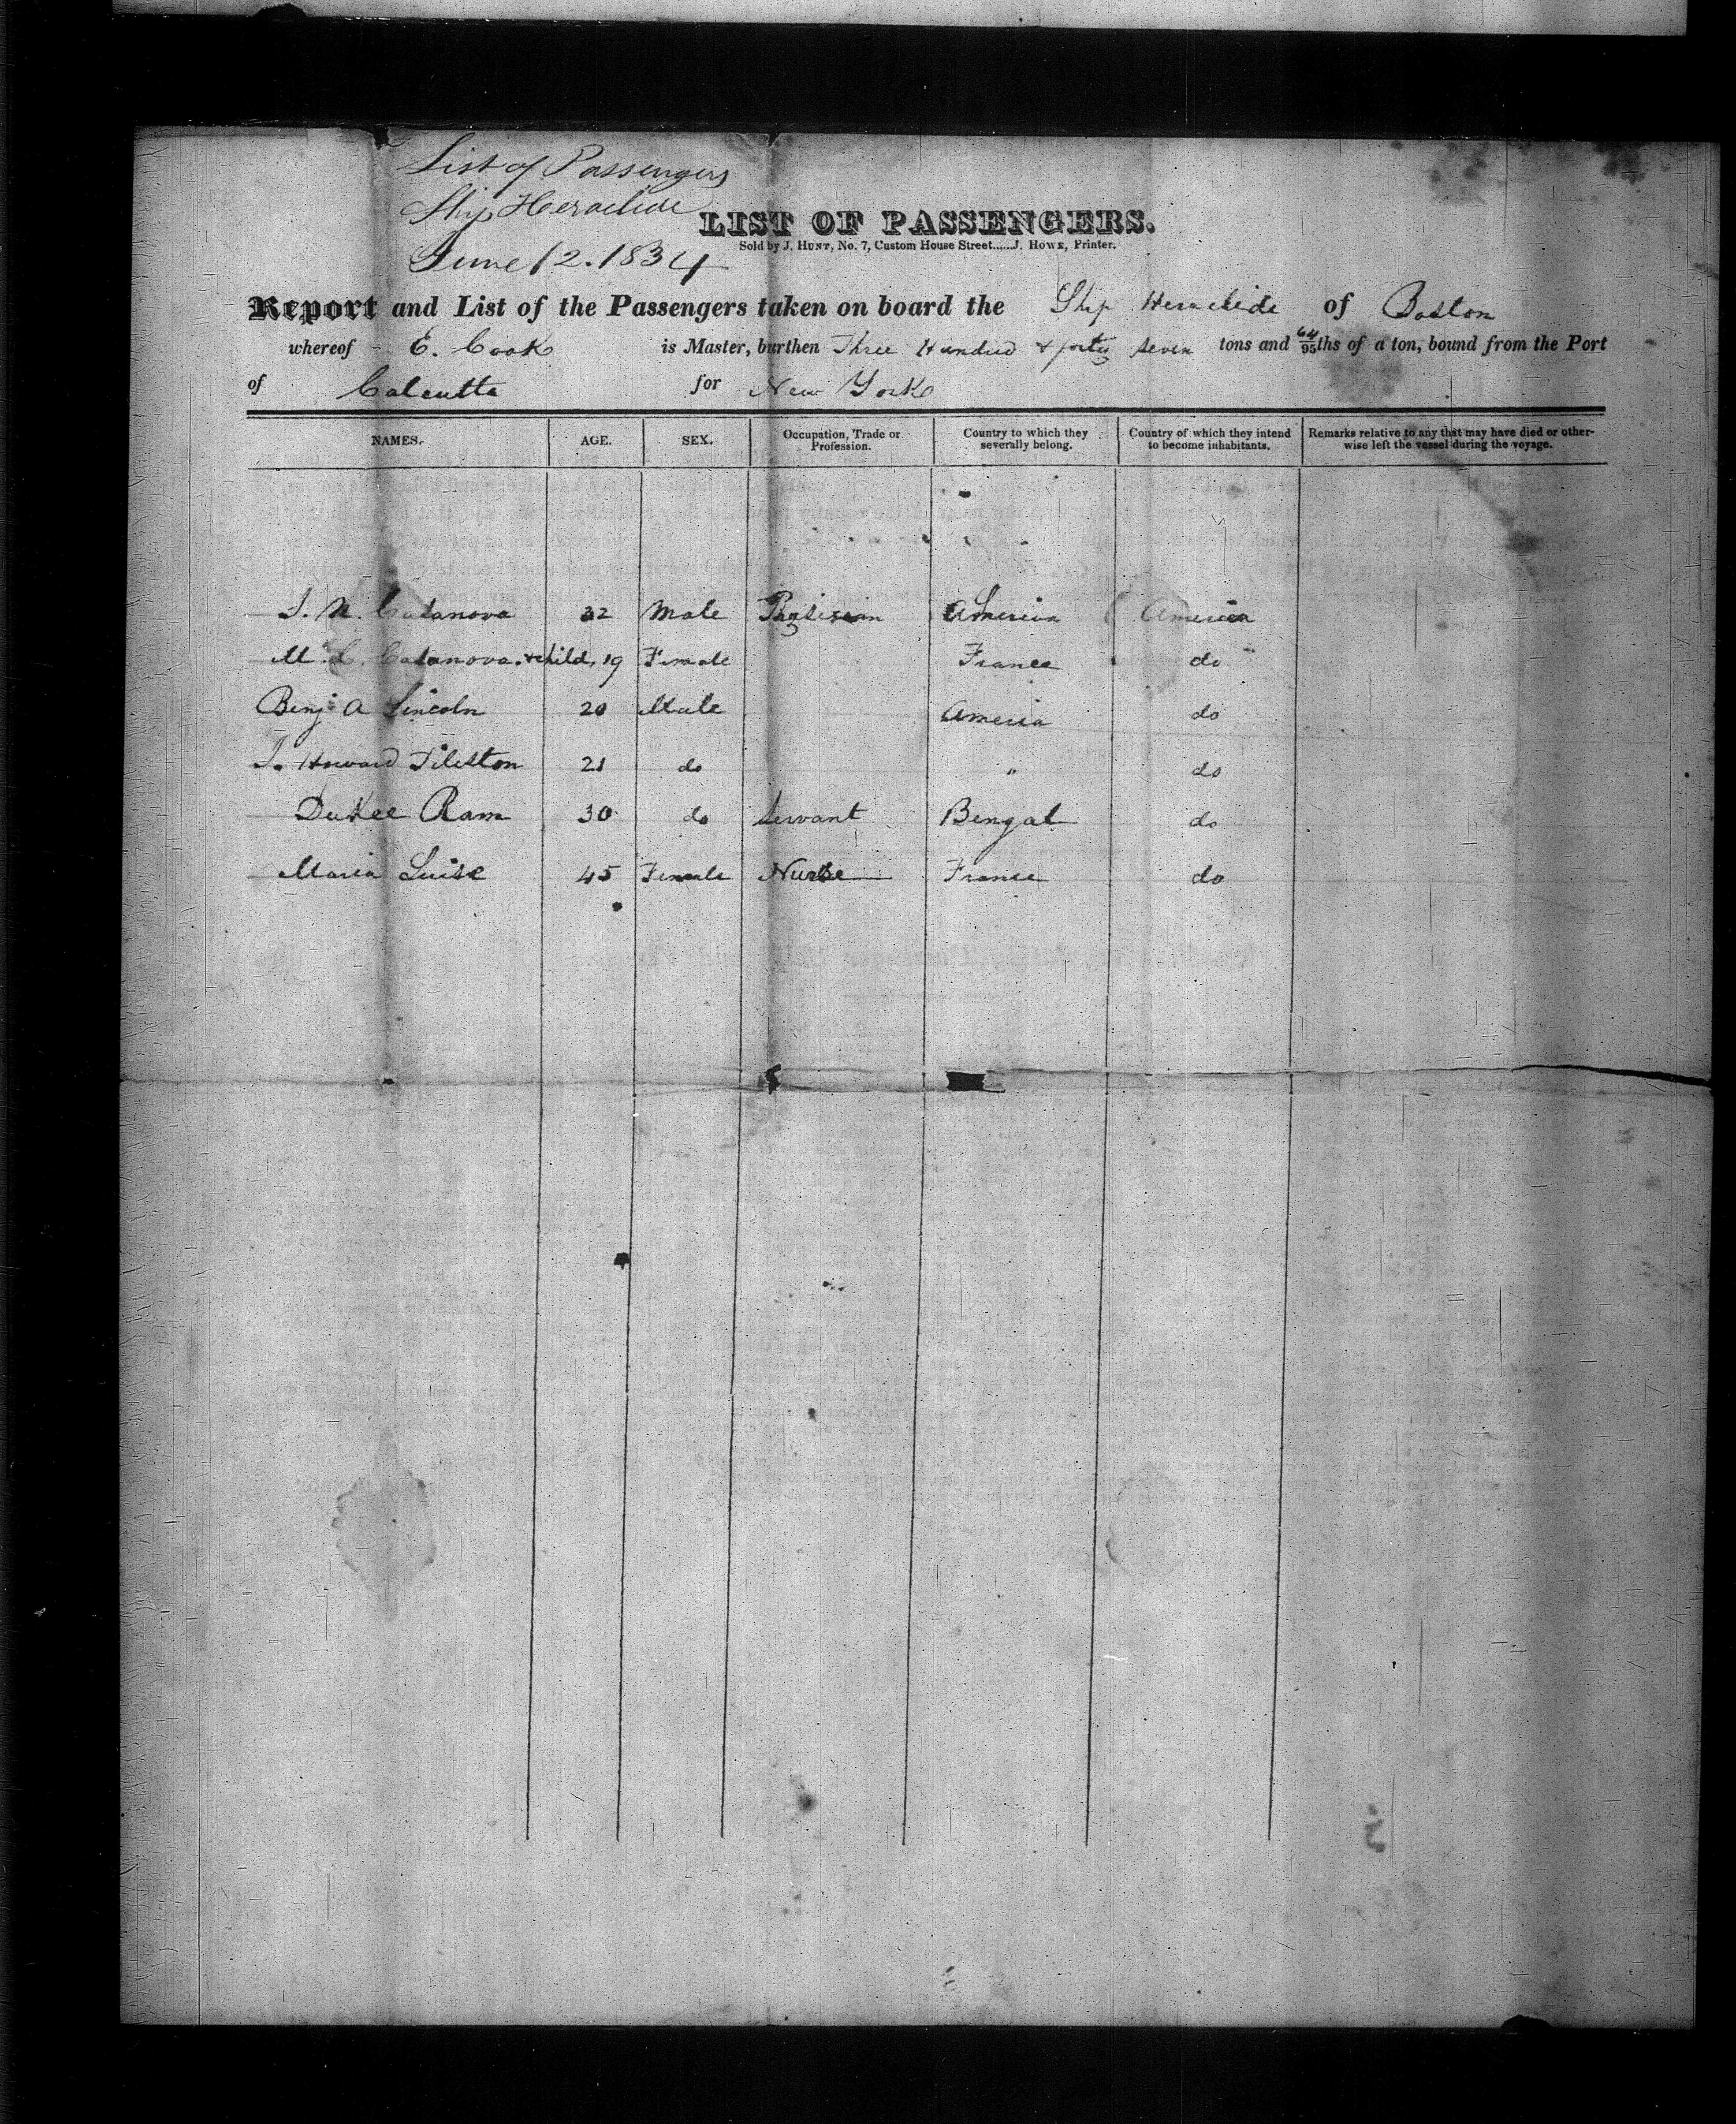 List of Passengers
Ship Heraclide
June 12. 1834
LIST OF PASSENGERS.
Sold by J. HUNT, No. 7, Custom House Street......J. HOWE, Printer.
Report and List of the Passengers taken on board the Ship Heraclide of Boston
whereof E. Cook is Master, burthen Three Hundred & forty seven tons and 64/95ths of a ton, bound from the Port
of Calcutta for New York
NAMES. AGE. SEX. Occupation, Trade or Profession. Country to which they severally belong. Country of which they intend to become inhabitants. Remarks relative to any that may have died or otherwise left the vessel during the voyage.
Casanova 32 Male Phisician America America
Casanova & child, 19 Female France do
Benj A Lincoln 20 Male America do
Howard Tileston 21 do " do
Dukee Ram 30 do Servant Bengal do
Maria Luise 45 Female Nurse France do